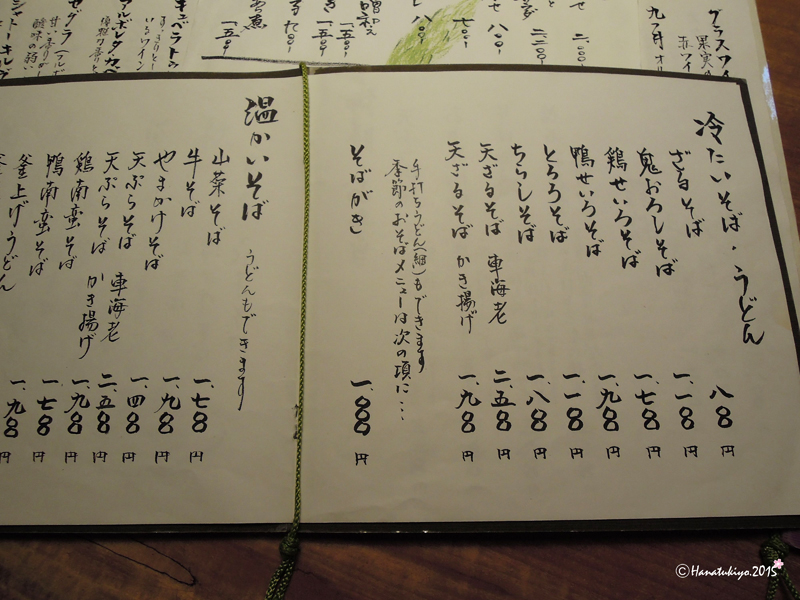 冷たいそば・うどん
ざるそば 八〇〇円
鬼おろしそば 一、一〇〇円
鶏せいろそば 一、七〇〇円
鴨せいろそば 一、九〇〇円
とろろそば 一、一〇〇円
ちらしそば 一、八〇〇円
天ざるそば 車海老 二、五〇〇円
天ざるそば かき揚げ 一、九〇〇円
手打ちうどん(細)もできます
季節のおそばメニューは次の項に・・・
そばがき 一、〇〇〇円
温かいそば うどんもできます
山菜そば 一、七〇〇円
牛そば 一、九〇〇円
やまかけそば 一、四〇〇円
天ぷらそば 車海老 二、五〇〇円
天ぷらそば かき揚げ 一、九〇〇円
鶏南蛮そば 一、七〇〇円
鴨南蛮そば 一、九〇〇円
釜上げうどん
グラスワイ
果実
赤ワイ
©Hanatukiyo.2015